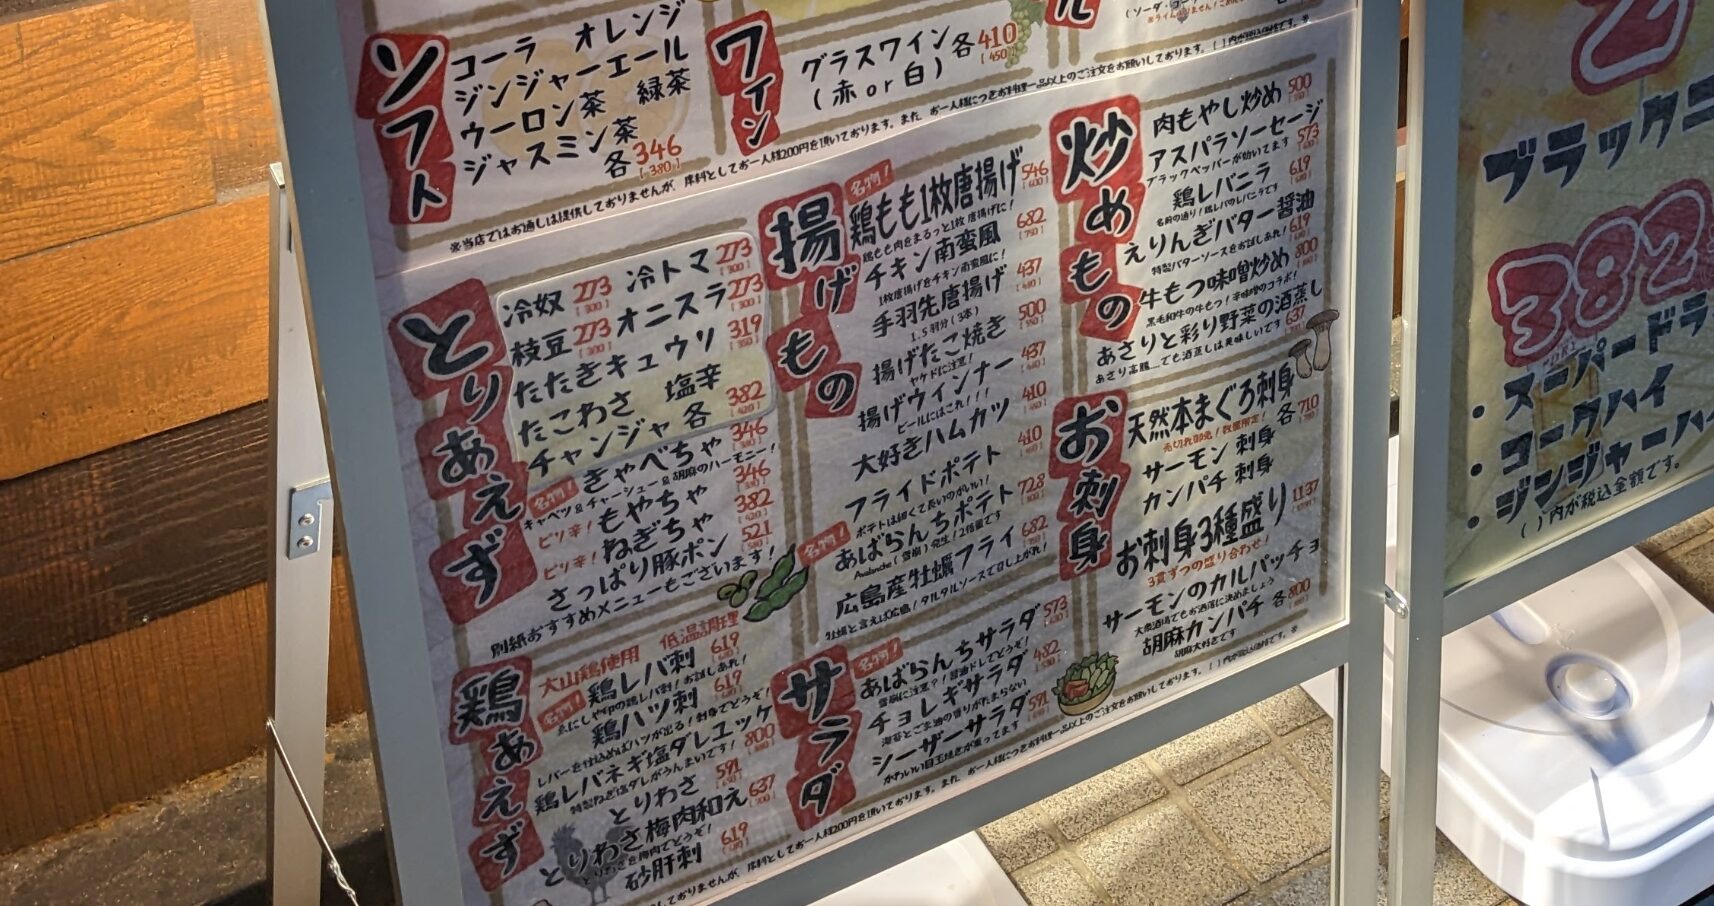 ソフト
コーラ オレンジ
ジンジャーエール
ウーロン茶 緑茶
ジャスミン茶
各346
[380]
ワイン
グラスワイン 各410
(赤or白) [450]
※当店ではお通しは提供しておりませんが、席料としてお一人様200円を頂いております。また、お一人様につきお料理一品以上のご注文をお願いしております。( )内が税込価格です。※
とりあえず
冷奴 273 [300] 冷トマ 273 [300]
枝豆 273 [300] オニスラ 273 [300]
たたきキュウリ 319 [350]
たこわさ 塩辛
チャンジャ 各 382 [420]
名物! きゃべちゃ 346
キャベツ&チャーシュー&胡麻のハーモニー!
ピリ辛! もやちゃ 346
ピリ辛! ねぎちゃ 382 [420]
さっぱり豚ポン 521
別紙おすすめメニューもございます!
鶏あえず
大山鶏使用 低温調理
名物! 鶏レバ刺 619
鶏ハツ刺 619
鶏レバネギ塩ダレユッケ 800
とりわさ 591
とりわさ梅肉和え 637 [700]
砂肝刺 619
揚げもの
名物!
鶏もも1枚唐揚げ 546 [600]
鶏もも肉をまるっと1枚唐揚げに!
チキン南蛮風 682 [750]
1枚唐揚げをチキン南蛮風に!
手羽先唐揚げ 437 [480]
1.5羽分(3本)
揚げたこ焼き 500 [550]
ヤケドに注意!
揚げウインナー 437
ビールにはこれ!!!
大好きハムカツ 410
フライドポテト 410
ポテトは細くて長いのがいい!
名物! あばらんちポテト 728
Avalanche(雪崩)発生!2倍量です
広島産牡蠣フライ 682
牡蠣と言えば広島!タルタルソースで召し上がれ!
サラダ
名物!
あばらんちサラダ 573
チョレギサラダ 482
海苔とごま油の香りがたまらない
シーザーサラダ 591
かわいい目玉焼きが乗ってます
炒めもの
肉もやし炒め 500 [550]
アスパラソーセージ 573
ブラックペッパーが効いてます
鶏レバニラ 619
名前の通り!鶏レバのレバニラです
えりんぎバター醤油 619
特製バターソースをお試しあれ!
牛もつ味噌炒め 800
黒毛和牛の牛もつ!辛味噌のコラボ!
あさりと彩り野菜の酒蒸し 637
あさり高騰…でも酒蒸しは美味しいです
お刺身
天然本まぐろ刺身
売切れ御免!数量限定!
サーモン 刺身 各710
カンパチ 刺身
お刺身3種盛り 1137
3貫ずつの盛り合わせ!
サーモンのカルパッチョ
大衆酒場でもお洒落に決めましょう
胡麻カンパチ 各800
胡麻大好きです
席料としてお一人様200円を頂いております。また、お一人様につきお料理一品以上のご注文をお願いしております。( )内が税込価格です。※
ブラックニ
382
・スーパードラ
・コークハイ
・ジンジャーハイ
( )内が税込金額です。